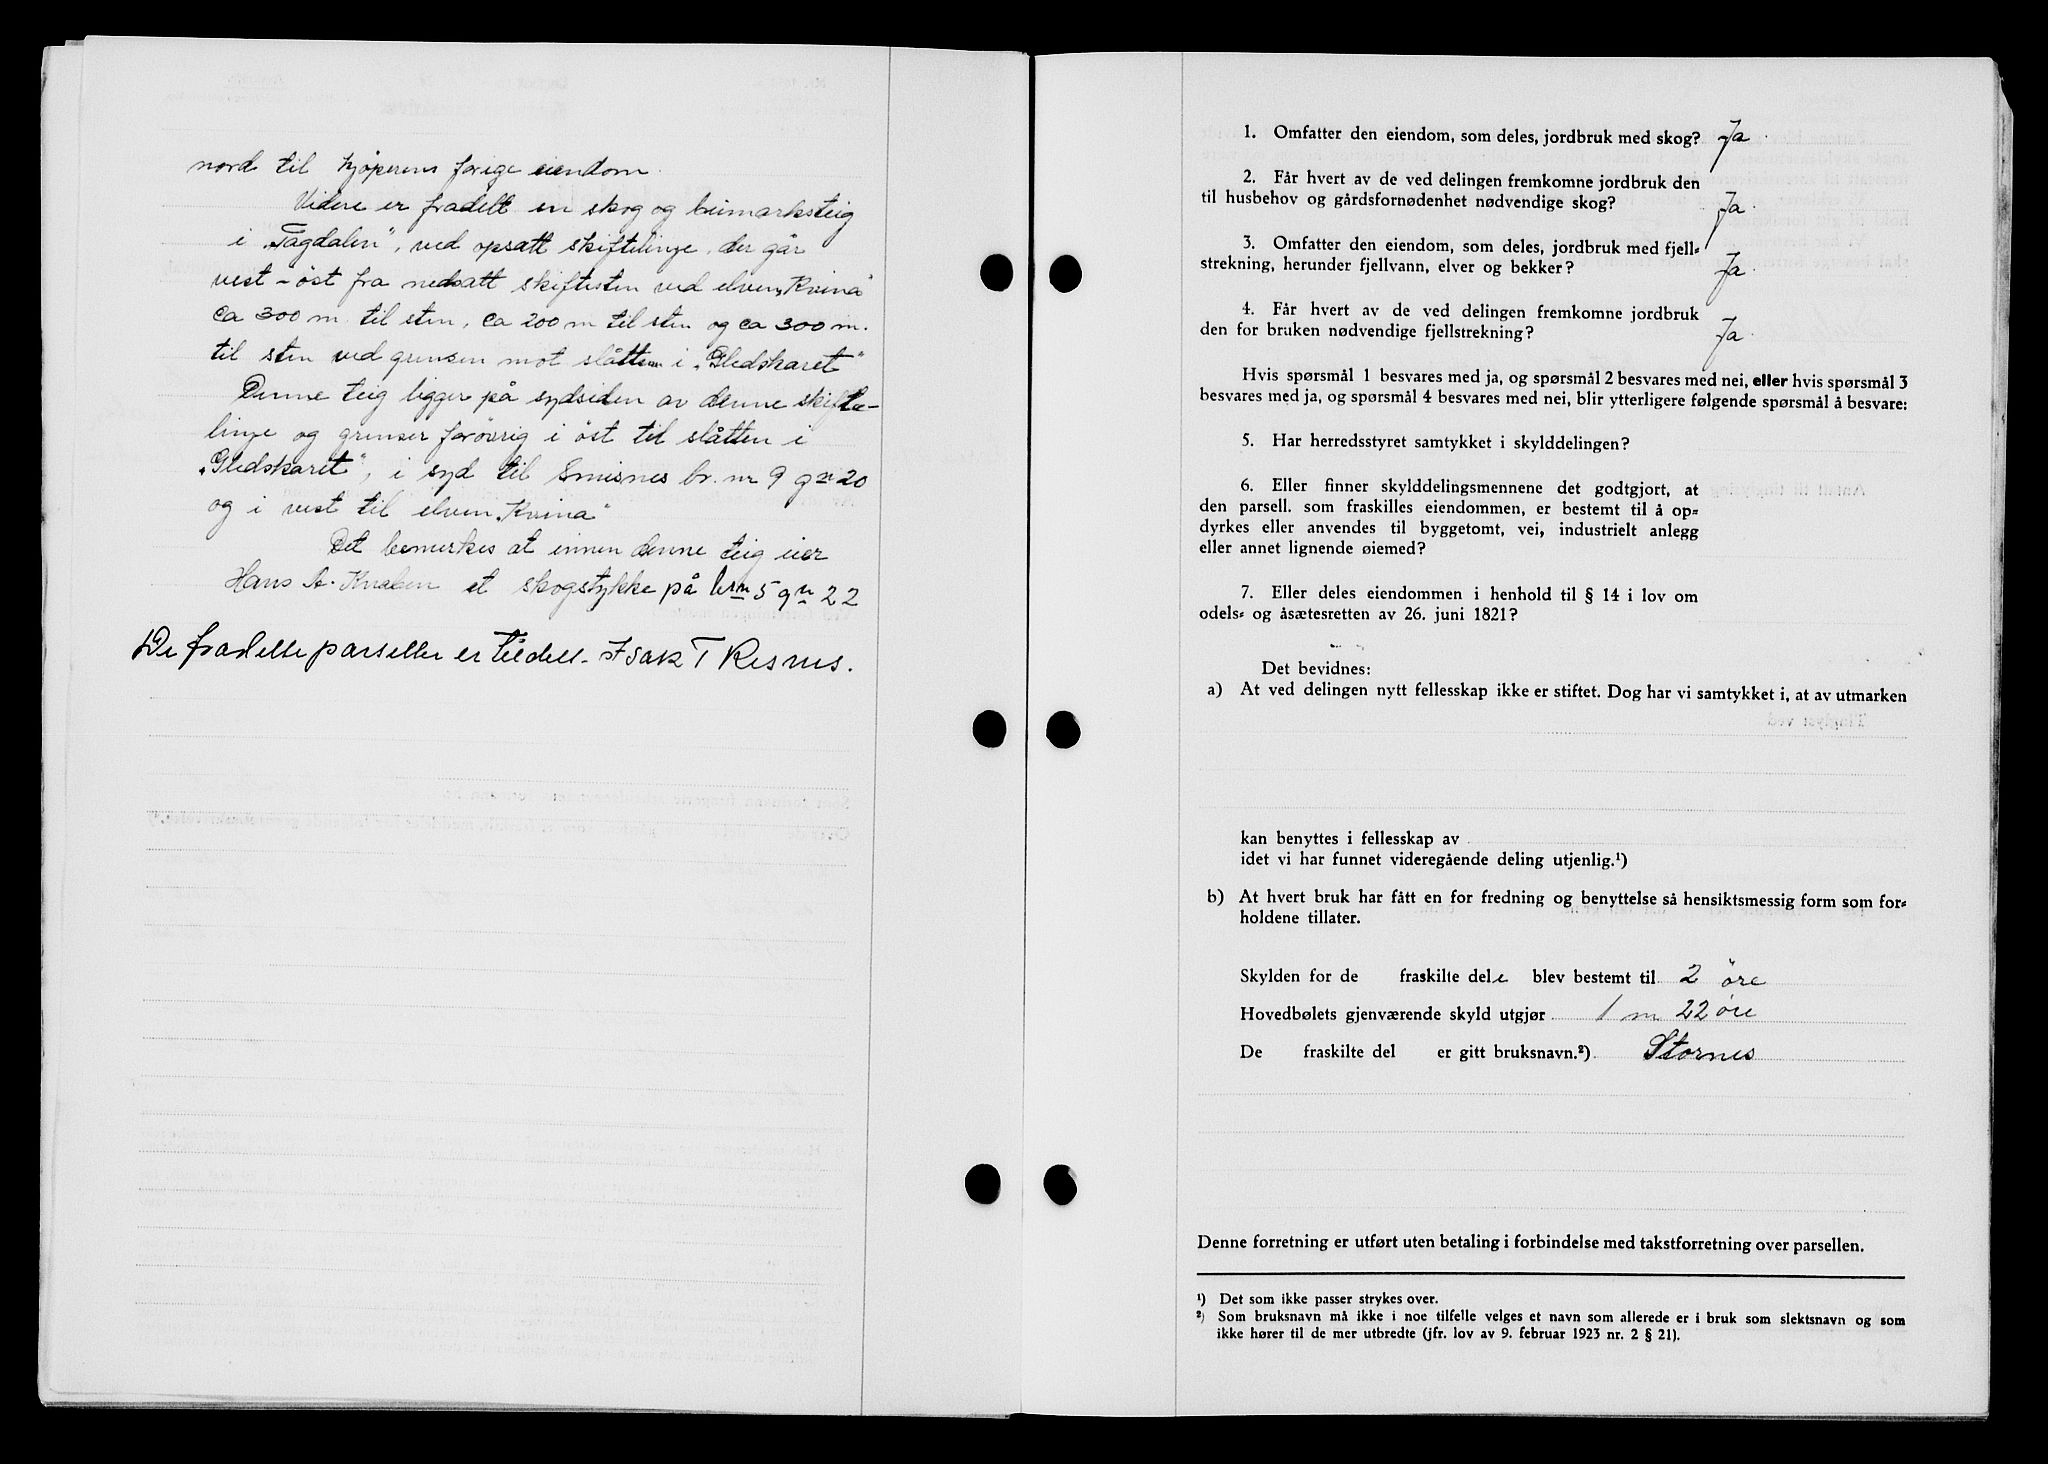 nord til kjøperens forige eiendom.
Videre er fradelt en skog og beimarksteig
i „Tagdalen", ved opsatt skiftelinje, der går
vest - öst fra nedsatt skiftesten ved elven „Kvina"
ca 300 m til sten, ca 200 m til sten og ca 300 m.
til sten ved grensen mot slåtten i „Gledskaret"
Denne teig ligger på sydsiden av denne skifte-
linje og grenser forövrig i öst til slåtten i
„Gledskaret", i syd til Smisnes br. nr 9 gn 20
og i vest til elven „Kvina"
Det bemerkes at innen denne teig eier
Hans A. Knaben et skogstykke på brn 5 gn 22
De fradelte parseller er tildelt Isak T Risnes.
1. Omfatter den eiendom, som deles, jordbruk med skog? Ja
2. Får hvert av de ved delingen fremkomne jordbruk den
til husbehov og gårdsfornødenhet nødvendige skog? Ja
3. Omfatter den eiendom, som deles, jordbruk med fjell-
strekning, herunder fjellvann, elver og bekker? Ja
4. Får hvert av de ved delingen fremkomne jordbruk
den for bruken nødvendige fjellstrekning? Ja
Hvis spørsmål 1 besvares med ja, og spørsmål 2 besvares med nei, eller hvis spørsmål 3
besvares med ja, og spørsmål 4 besvares med nei, blir ytterligere følgende spørsmål å besvare:
5. Har herredsstyret samtykket i skylddelingen?
6. Eller finner skylddelingsmennene det godtgjort, at
den parsell. som fraskilles eiendommen, er bestemt til å op-
dyrkes eller anvendes til byggetomt, vei, industrielt anlegg
eller annet lignende øiemed?
7. Eller deles eiendommen i henhold til § 14 i lov om
odels- og åsætesretten av 26. juni 1821?
Det bevidnes:
a) At ved delingen nytt fellesskap ikke er stiftet. Dog har vi samtykket i, at av utmarken
kan benyttes i fellesskap av
idet vi har funnet videregående deling utjenlig.¹)
b) At hvert bruk har fått en for fredning og benyttelse så hensiktsmessig form som for-
holdene tillater.
Skylden for de fraskilte dele blev bestemt til 2 öre
Hovedbølets gjenværende skyld utgjør 1 m 22 öre
De fraskilte del er gitt bruksnavn.²) Stornes
Denne forretning er utført uten betaling i forbindelse med takstforretning over parsellen.
¹) Det som ikke passer strykes over.
²) Som bruksnavn må ikke i noe tilfelle velges et navn som allerede er i bruk som slektsnavn og som
ikke hører til de mer utbredte (jfr. lov av 9. februar 1923 nr. 2 § 21).